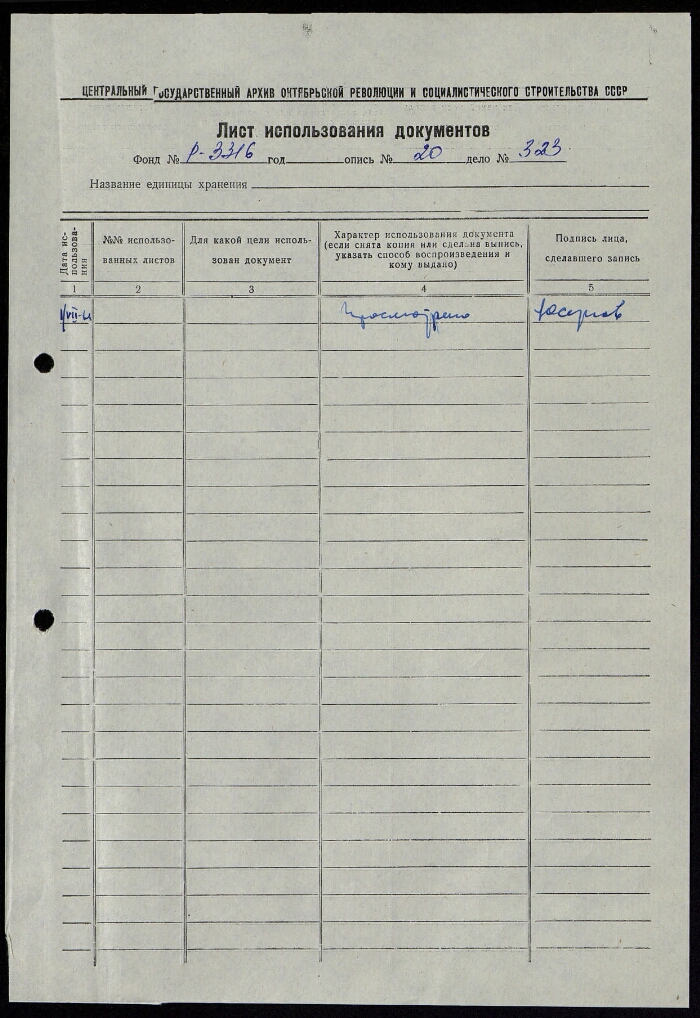 ЦЕНТРАЛЬНЫЙ ГОСУДАРСТВЕННЫЙ АРХИВ ОКТЯБРЬСКОЙ РЕВОЛЮЦИИ И СОЦИАЛИСТИЧЕСКОГО СТРОИТЕЛЬСТВА СССР
Лист использования документов
Фонд № Р-3316 год опись № 20 дело № 323
Название единицы хранения
Дата ис-
пользова-
ния
№№ использо-
ванных листов
Для какой цели исполь-
зован документ
Характер использования документа
(если снята копия или сделана выпись,
указать способ воспроизведения и
кому выдано)
Подпись лица,
сделавшего запись
1 2 3 4 5
Просмотрено